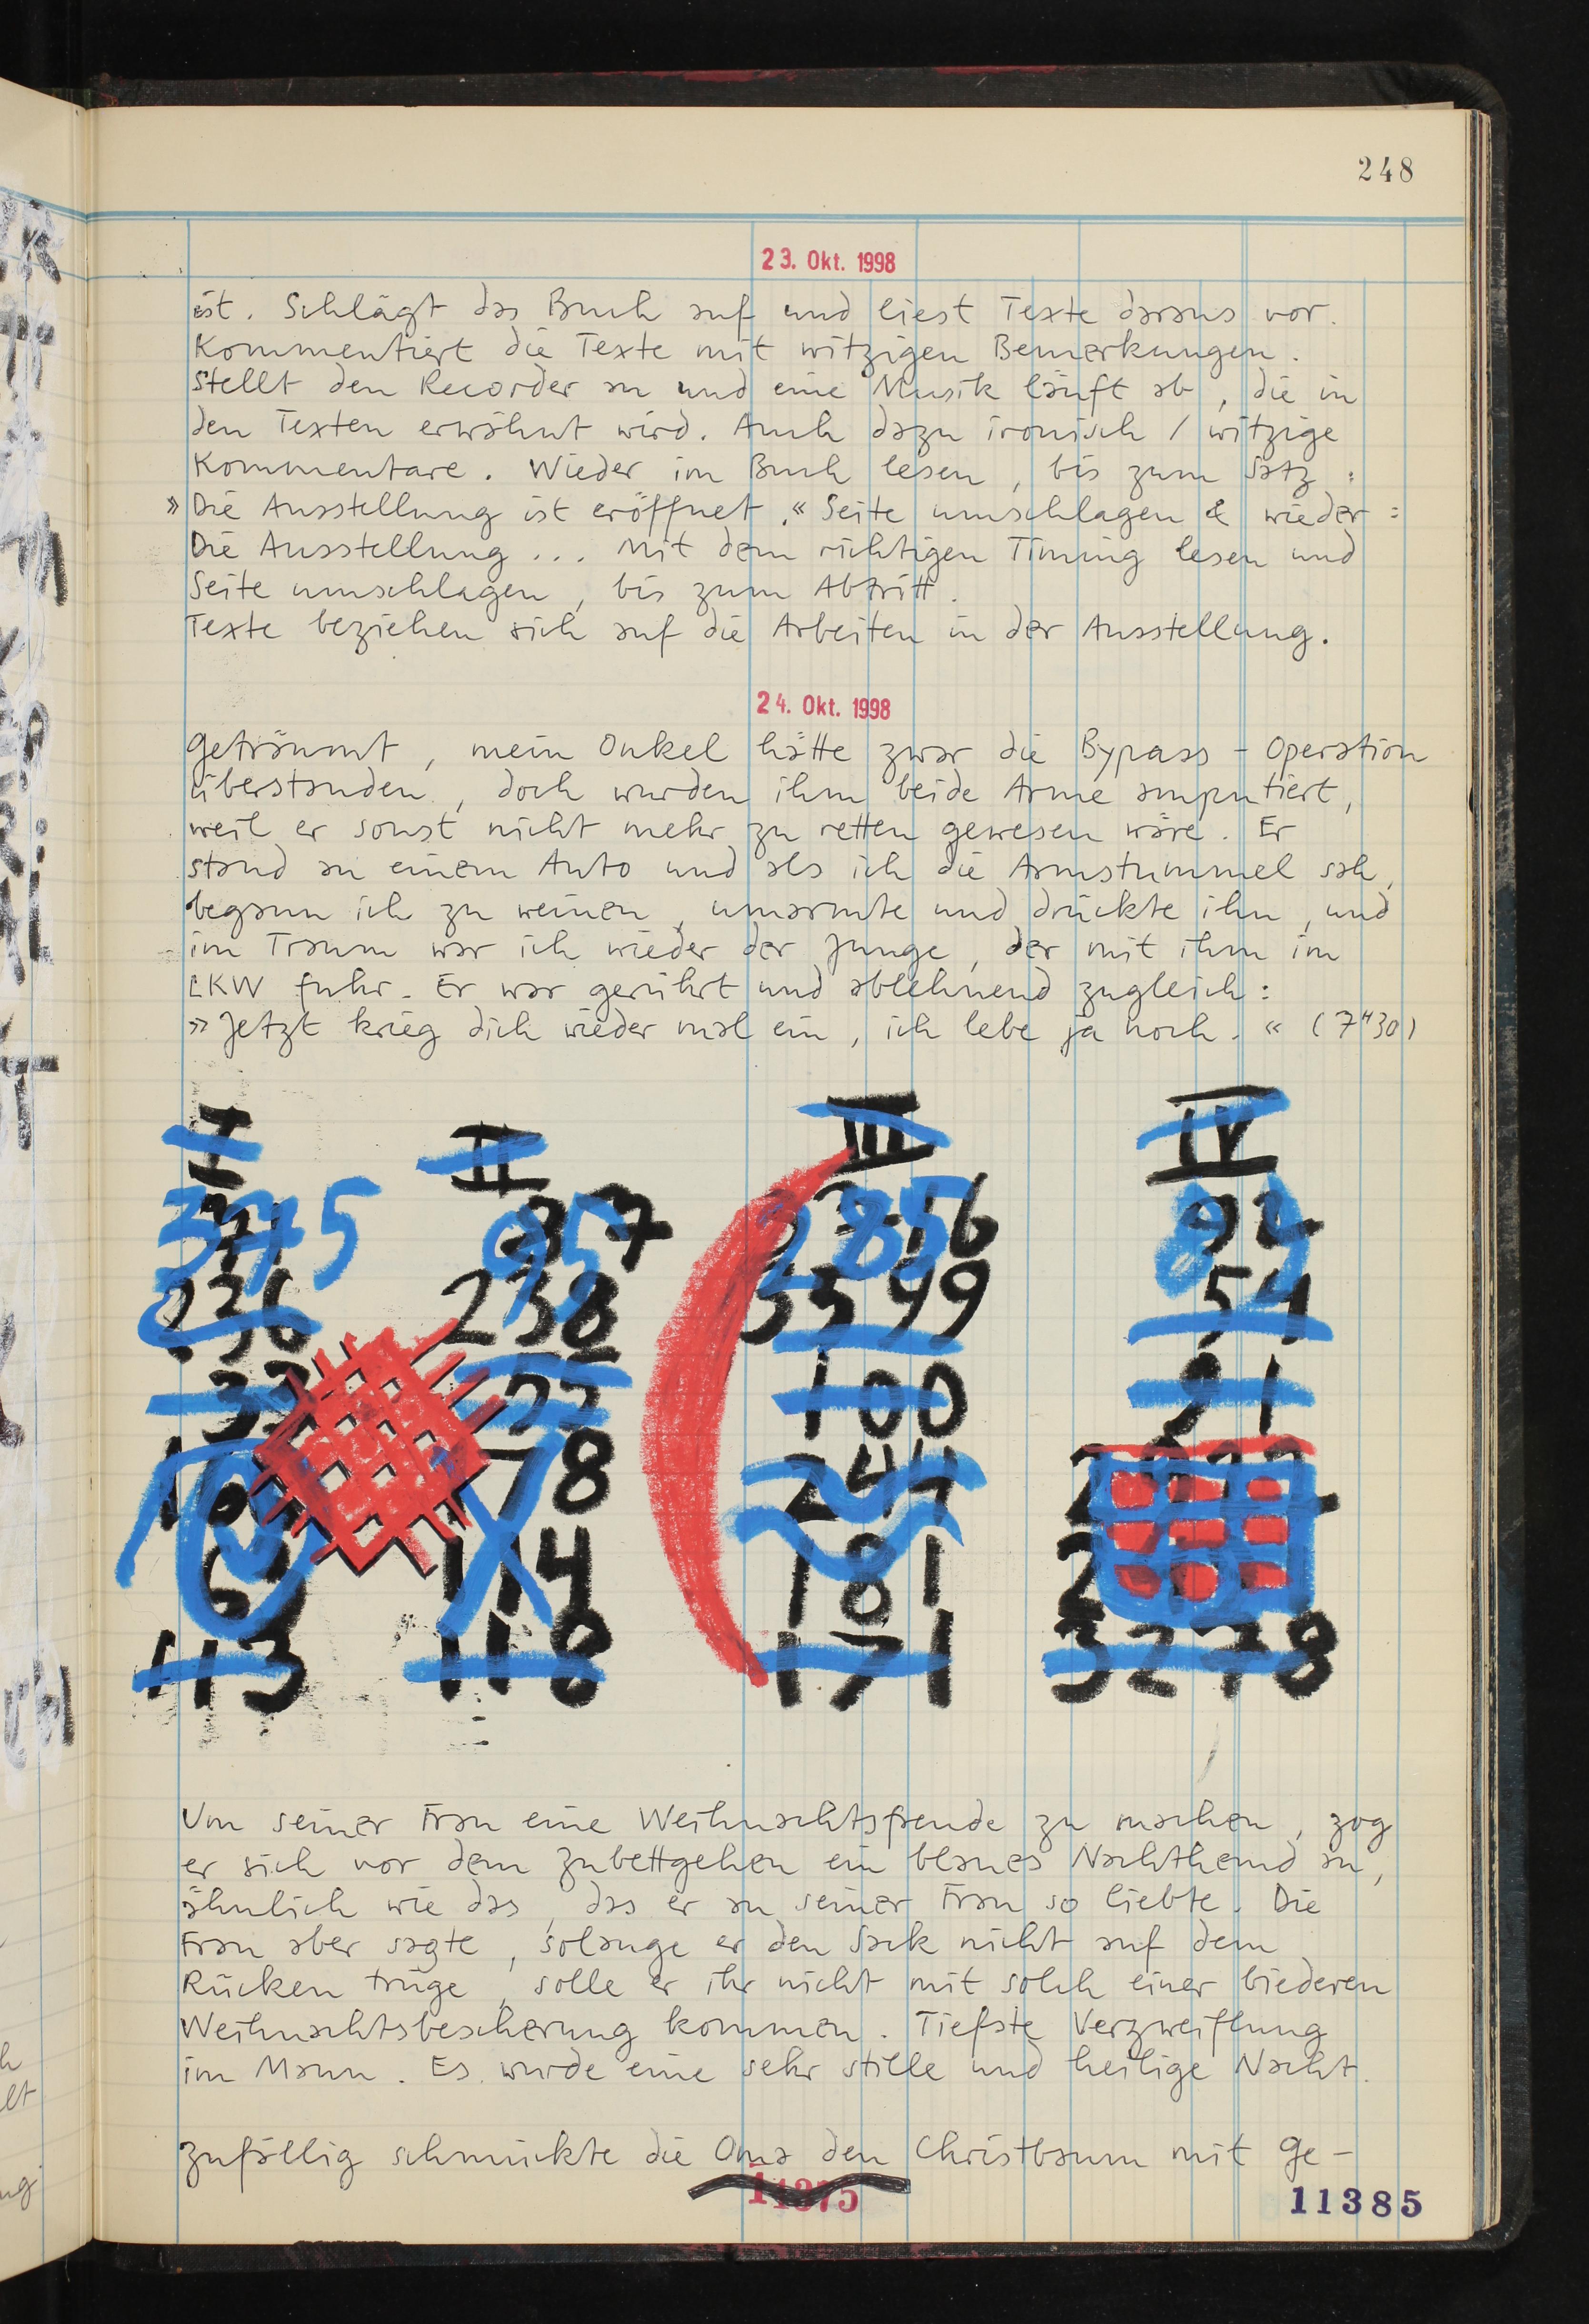 248
23. Okt. 1998
ist. Schlägt das Buch auf und liest Texte daraus vor.
Kommentiert die Texte mit witzigen Bemerkungen.
Stellt den Recorder an und eine Musik läuft ab, die in
den Texten erwähnt wird. Auch dazu ironisch / witzige
Kommentare. Wieder im Buch lesen, bis zum Satz:
»Die Ausstellung ist eröffnet.« Seite umschlagen & wieder:
Die Ausstellung ... Mit dem richtigen Timing lesen und
Seite umschlagen, bis zum Abtritt.
Texte beziehen sich auf die Arbeiten in der Ausstellung.
24. Okt. 1998
Geträumt, mein Onkel hätte zwar die Bypass-Operation
überstanden, doch wurden ihm beide Arme amputiert,
weil er sonst nicht mehr zu retten gewesen wäre. Er
stand an einem Auto und als ich die Armstummel sah,
begann ich zu weinen, umarmte und drückte ihn, und
im Traum war ich wieder der Junge, der mit ihm im
LKW fuhr. Er war gerührt und ablehnend zugleich:
»Jetzt krieg dich wieder mal ein, ich lebe ja noch.« (7ʰ30)
I II III IV
375 95 285 89
236 238 3599 54
33 100 91
78 244
69 114 181
113 118 171 3278
Um seiner Frau eine Weihnachtsfreude zu machen, zog
er sich vor dem Zubettgehen ein blaues Nachthemd an,
ähnlich wie das, das er an seiner Frau so liebte. Die
Frau aber sagte, solange er den Sack nicht auf dem
Rücken trüge, solle er ihr nicht mit solch einer biederen
Weihnachtsbescherung kommen. Tiefste Verzweiflung
im Mann. Es wurde eine sehr stille und heilige Nacht.
Zufällig schmückte die Oma den Christbaum mit Ge-
11375
11385